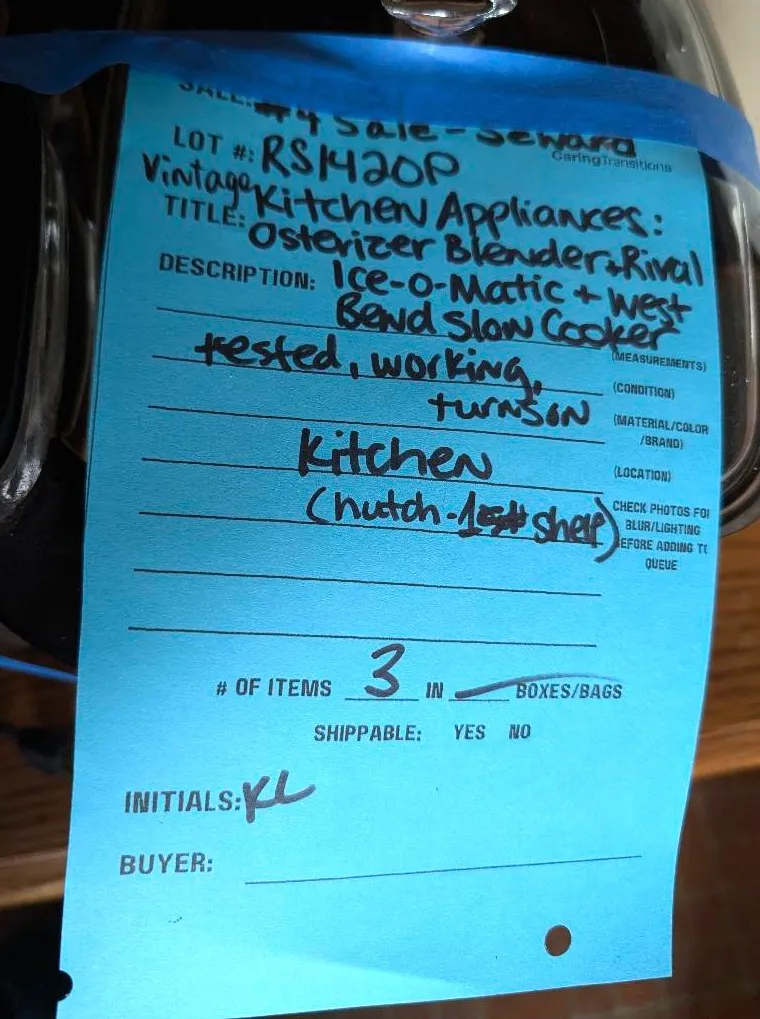 SALE: #4 Sale - Seward
CaringTransitions
LOT #: RS1420P
Vintage Kitchen Appliances:
TITLE: Osterizer Blender + Rival
DESCRIPTION: Ice-O-Matic + West
Bend Slow Cooker
(MEASUREMENTS)
tested, working,
(CONDITION)
turns on
(MATERIAL/COLOR
/BRAND)
Kitchen
(LOCATION)
(hutch - 1st shelf)
CHECK PHOTOS FO
BLUR/LIGHTING
EFORE ADDING T
QUEUE
# OF ITEMS 3 IN BOXES/BAGS
SHIPPABLE: YES NO
INITIALS: KL
BUYER: